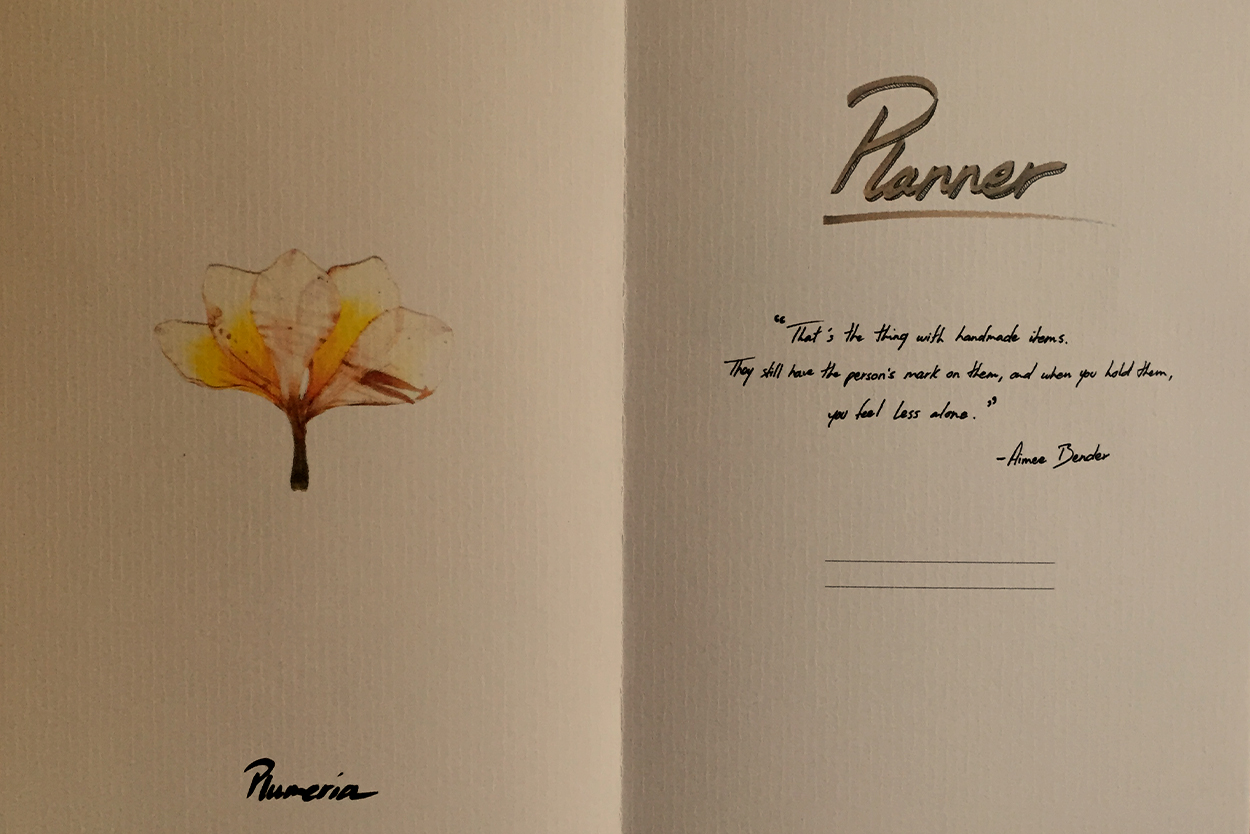 Plumeria
Planner
“That's the thing with handmade items.
They still have the person's mark on them, and when you hold them,
you feel less alone.”
-Aimee Bender